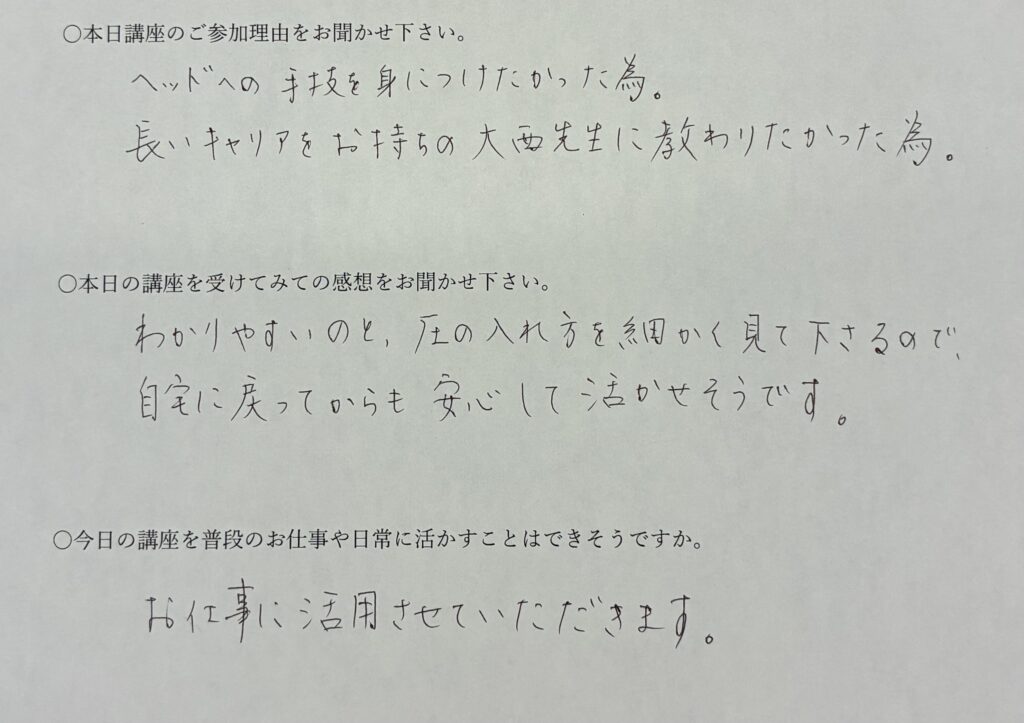 ○本日講座のご参加理由をお聞かせ下さい。
ヘッドへの手技を身につけたかった為。
長いキャリアをお持ちの大西先生に教わりたかった為。
○本日の講座を受けてみての感想をお聞かせ下さい。
わかりやすいのと、圧の入れ方を細かく見て下さるので、
自宅に戻ってからも安心して活かせそうです。
○今日の講座を普段のお仕事や日常に活かすことはできそうですか。
お仕事に活用させていただきます。